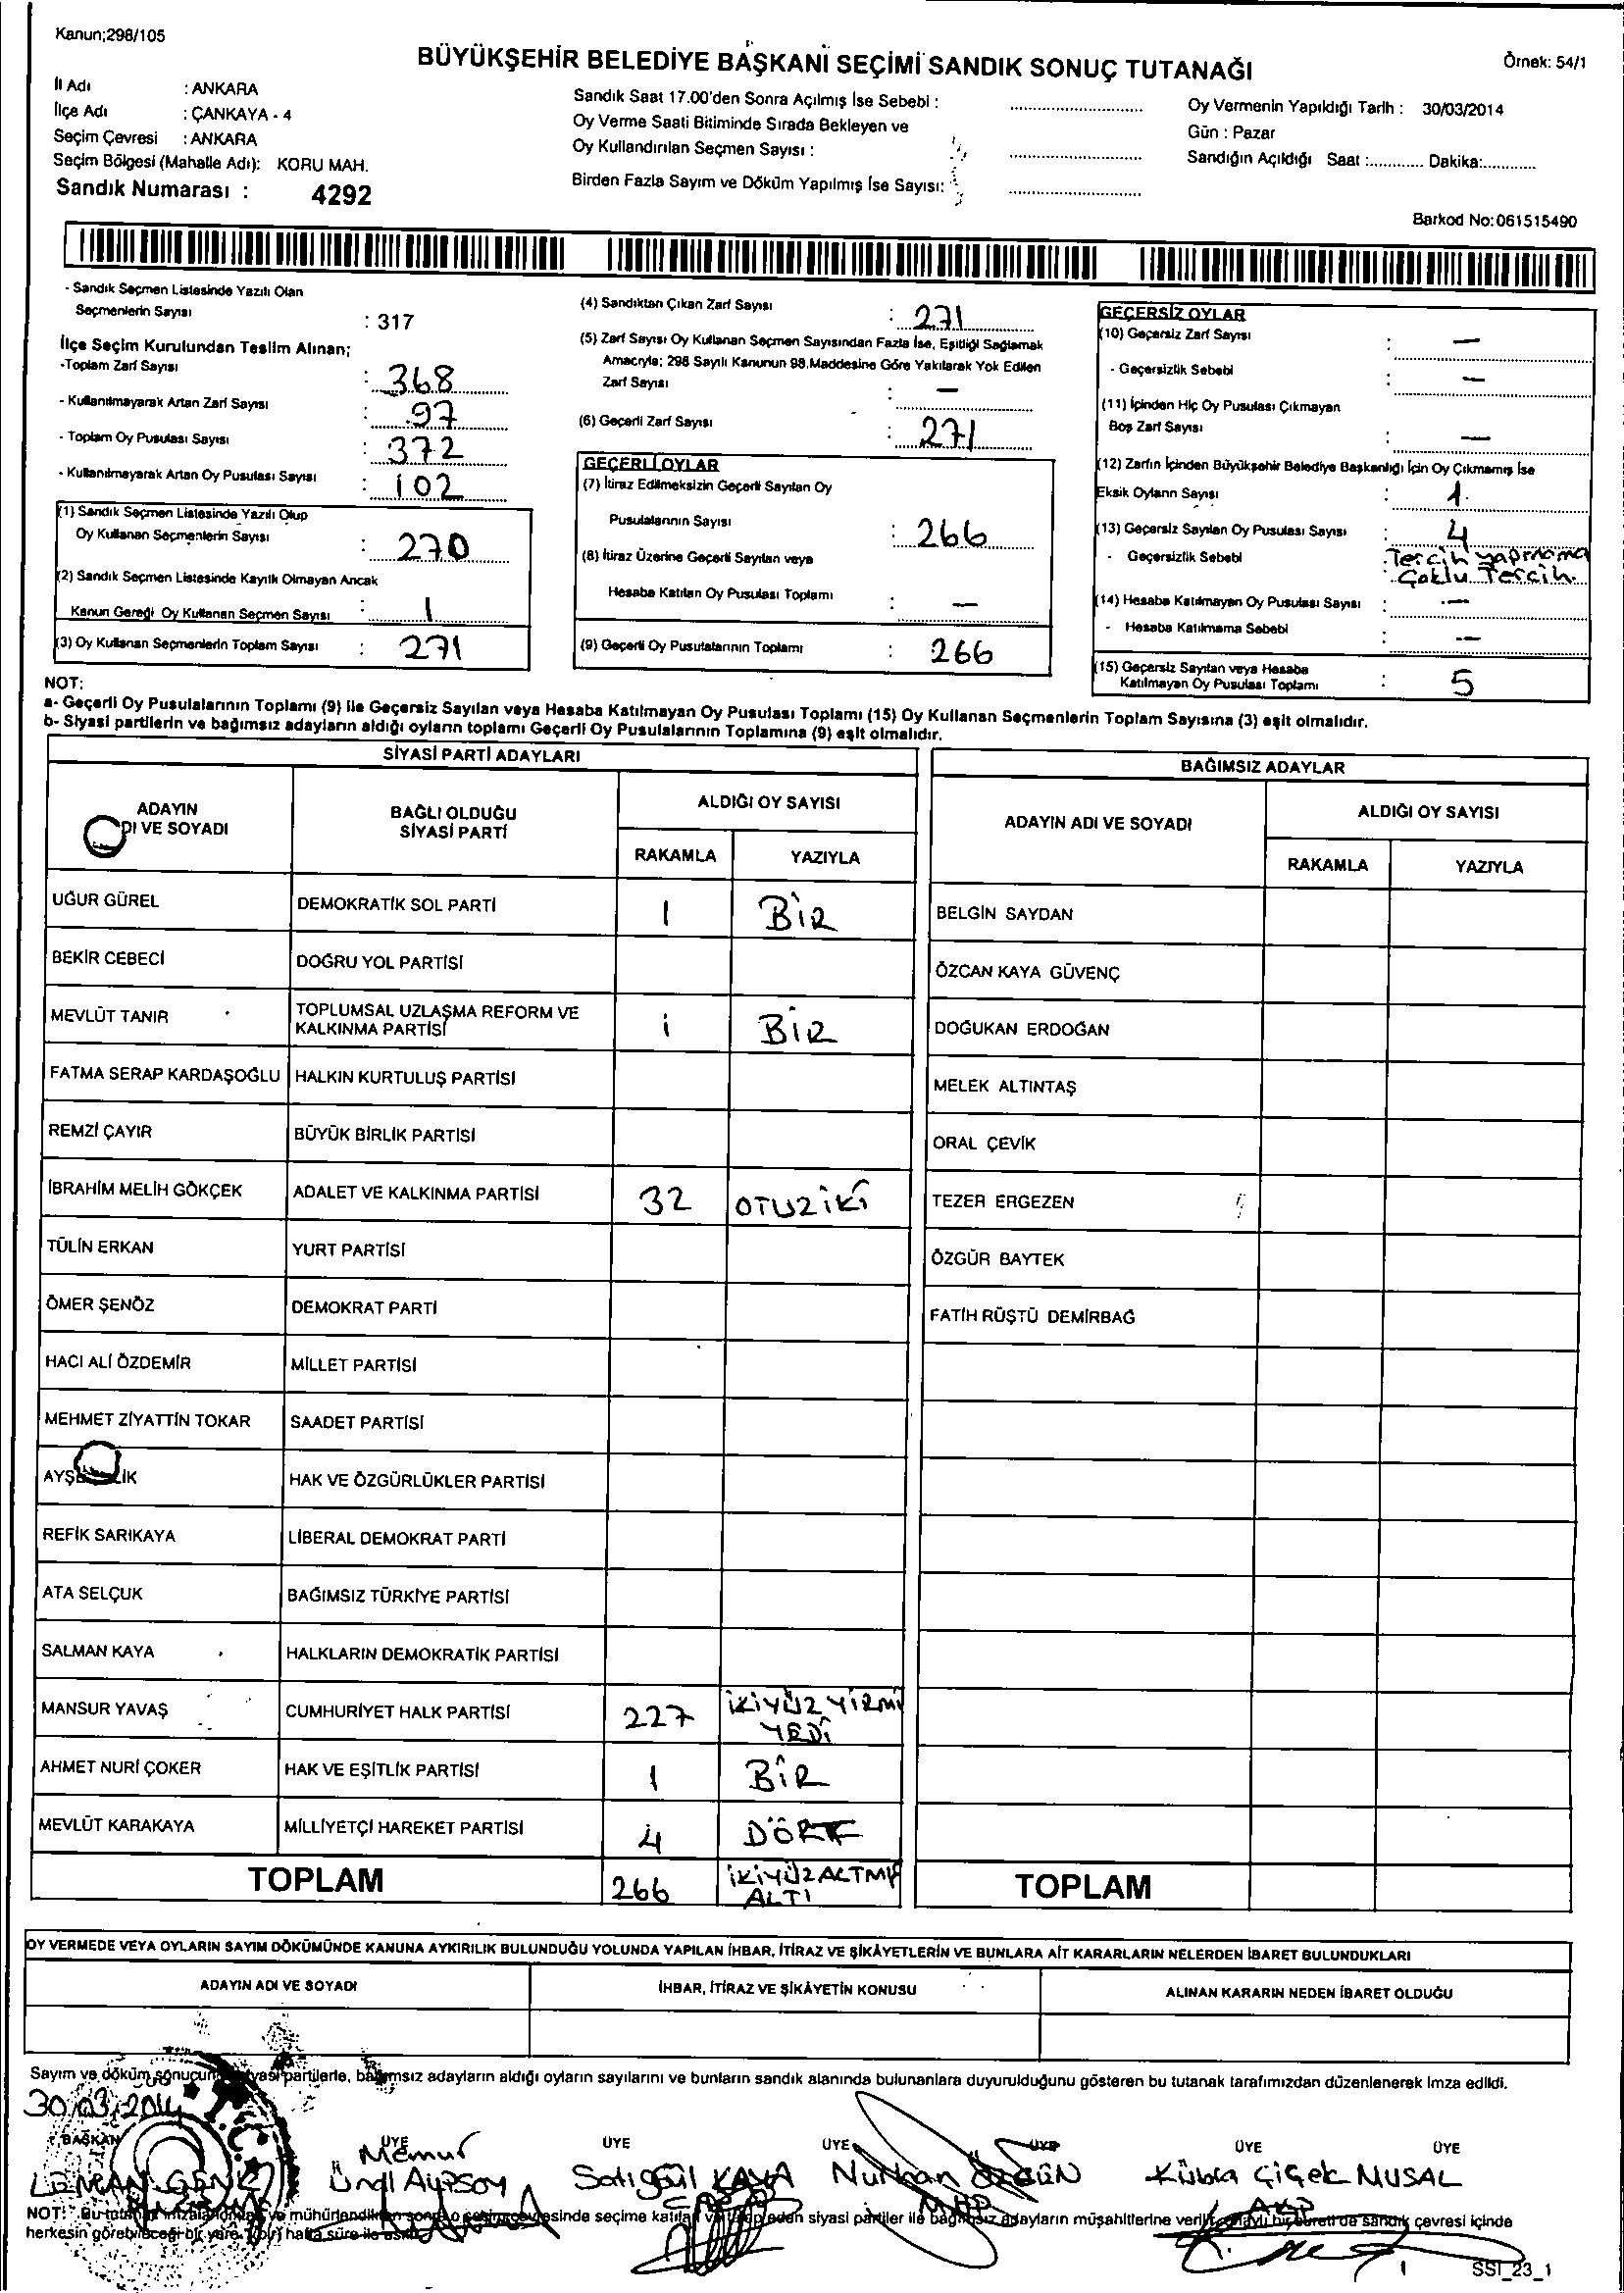 Kanun;298/105
BÜYÜKŞEHİR BELEDİYE BAŞKANI SEÇİMİ SANDIK SONUÇ TUTANAĞI
Örnek: 54/1
İl Adı : ANKARA
İlçe Adı : ÇANKAYA - 4
Seçim Çevresi : ANKARA
Seçim Bölgesi (Mahalle Adı): KORU MAH.
Sandık Numarası : 4292
Sandık Saat 17.00'den Sonra Açılmış İse Sebebi :
Oy Verme Saati Bitiminde Sırada Bekleyen ve
Oy Kullandırılan Seçmen Sayısı :
Birden Fazla Sayım ve Döküm Yapılmış İse Sayısı:
Oy Vermenin Yapıldığı Tarih : 30/03/2014
Gün : Pazar
Sandığın Açıldığı Saat :............ Dakika:............
Barkod No:061515490
- Sandık Seçmen Listesinde Yazılı Olan
Seçmenlerin Sayısı : 317
İlçe Seçim Kurulundan Teslim Alınan;
-Toplam Zarf Sayısı : 368
- Kullanılmayarak Artan Zarf Sayısı : 97
- Toplam Oy Pusulası Sayısı : 372
- Kullanılmayarak Artan Oy Pusulası Sayısı : 102
(1) Sandık Seçmen Listesinde Yazılı Olup
Oy Kullanan Seçmenlerin Sayısı : 270
(2) Sandık Seçmen Listesinde Kayıtlı Olmayan Ancak
Kanun Gereği Oy Kullanan Seçmen Sayısı : 1
(3) Oy Kullanan Seçmenlerin Toplam Sayısı : 271
(4) Sandıktan Çıkan Zarf Sayısı : 271
(5) Zarf Sayısı Oy Kullanan Seçmen Sayısından Fazla İse, Eşitliği Sağlamak
Amacıyla; 298 Sayılı Kanunun 98.Maddesine Göre Yakılarak Yok Edilen
Zarf Sayısı : —
(6) Geçerli Zarf Sayısı : 271
GEÇERLİ OYLAR
(7) İtiraz Edilmeksizin Geçerli Sayılan Oy
Pusulalarının Sayısı : 266
(8) İtiraz Üzerine Geçerli Sayılan veya
Hesaba Katılan Oy Pusulası Toplamı : —
(9) Geçerli Oy Pusulalarının Toplamı : 266
GEÇERSİZ OYLAR
(10) Geçersiz Zarf Sayısı : —
- Geçersizlik Sebebi : —
(11) İçinden Hiç Oy Pusulası Çıkmayan
Boş Zarf Sayısı : —
(12) Zarfın İçinden Büyükşehir Belediye Başkanlığı İçin Oy Çıkmamış İse
Eksik Oyların Sayısı : 1
(13) Geçersiz Sayılan Oy Pusulası Sayısı : 4
- Geçersizlik Sebebi : Tercih yapmama
Çoklu Tercih.
(14) Hesaba Katılmayan Oy Pusulası Sayısı : —
- Hesaba Katılmama Sebebi : —
(15) Geçersiz Sayılan veya Hesaba
Katılmayan Oy Pusulası Toplamı : 5
NOT:
a- Geçerli Oy Pusulalarının Toplamı (9) ile Geçersiz Sayılan veya Hesaba Katılmayan Oy Pusulası Toplamı (15) Oy Kullanan Seçmenlerin Toplam Sayısına (3) eşit olmalıdır.
b- Siyasi partilerin ve bağımsız adayların aldığı oyların toplamı Geçerli Oy Pusulalarının Toplamına (9) eşit olmalıdır.
SİYASİ PARTİ ADAYLARI
ADAYIN
DI VE SOYADI
BAĞLI OLDUĞU
SİYASİ PARTİ
ALDIĞI OY SAYISI
RAKAMLA YAZIYLA
UĞUR GÜREL DEMOKRATİK SOL PARTİ 1 BİR
BEKİR CEBECİ DOĞRU YOL PARTİSİ
MEVLÜT TANIR TOPLUMSAL UZLAŞMA REFORM VE
KALKINMA PARTİSİ 1 BİR
FATMA SERAP KARDAŞOĞLU HALKIN KURTULUŞ PARTİSİ
REMZİ ÇAYIR BÜYÜK BİRLİK PARTİSİ
İBRAHİM MELİH GÖKÇEK ADALET VE KALKINMA PARTİSİ 32 OTUZİKİ
TÜLİN ERKAN YURT PARTİSİ
ÖMER ŞENÖZ DEMOKRAT PARTİ
HACI ALİ ÖZDEMİR MİLLET PARTİSİ
MEHMET ZİYATTİN TOKAR SAADET PARTİSİ
HAK VE ÖZGÜRLÜKLER PARTİSİ
REFİK SARIKAYA LİBERAL DEMOKRAT PARTİ
ATA SELÇUK BAĞIMSIZ TÜRKİYE PARTİSİ
SALMAN KAYA HALKLARIN DEMOKRATİK PARTİSİ
MANSUR YAVAŞ CUMHURİYET HALK PARTİSİ 227 İKİYÜZ YİRMİ
YEDİ
AHMET NURİ ÇOKER HAK VE EŞİTLİK PARTİSİ 1 BİR
MEVLÜT KARAKAYA MİLLİYETÇİ HAREKET PARTİSİ 4 DÖRT
TOPLAM 266 İKİYÜZALTMIŞ
ALTI
BAĞIMSIZ ADAYLAR
ADAYIN ADI VE SOYADI
ALDIĞI OY SAYISI
RAKAMLA YAZIYLA
BELGİN SAYDAN
ÖZCAN KAYA GÜVENÇ
DOĞUKAN ERDOĞAN
MELEK ALTINTAŞ
ORAL ÇEVİK
TEZER ERGEZEN
ÖZGÜR BAYTEK
FATİH RÜŞTÜ DEMİRBAĞ
TOPLAM
OY VERMEDE VEYA OYLARIN SAYIM DÖKÜMÜNDE KANUNA AYKIRILIK BULUNDUĞU YOLUNDA YAPILAN İHBAR, İTİRAZ VE ŞİKÂYETLERİN VE BUNLARA AİT KARARLARIN NELERDEN İBARET BULUNDUKLARI
ADAYIN ADI VE SOYADI
İHBAR, İTİRAZ VE ŞİKÂYETİN KONUSU
ALINAN KARARIN NEDEN İBARET OLDUĞU
Sayım ve döküm partilerle, bağımsız adayların aldığı oyların sayılarını ve bunların sandık alanında bulunanlara duyurulduğunu gösteren bu tutanak tarafımızdan düzenlenerek imza edildi.
30/03/2014
BAŞKAN ÜYE ÜYE ÜYE ÜYE ÜYE ÜYE
Memur
LEMAN GENÇ Satıgül KAYA Nurhan ÖZGÜN Kübra Çiçek MUSAL
MHP AKP
NOT: seçime katılan siyasi partiler ile bağımsız adayların müşahitlerine sandık çevresi içinde
herkesin görebileceği bir yere hafta süre ile
1 SSI_23_1